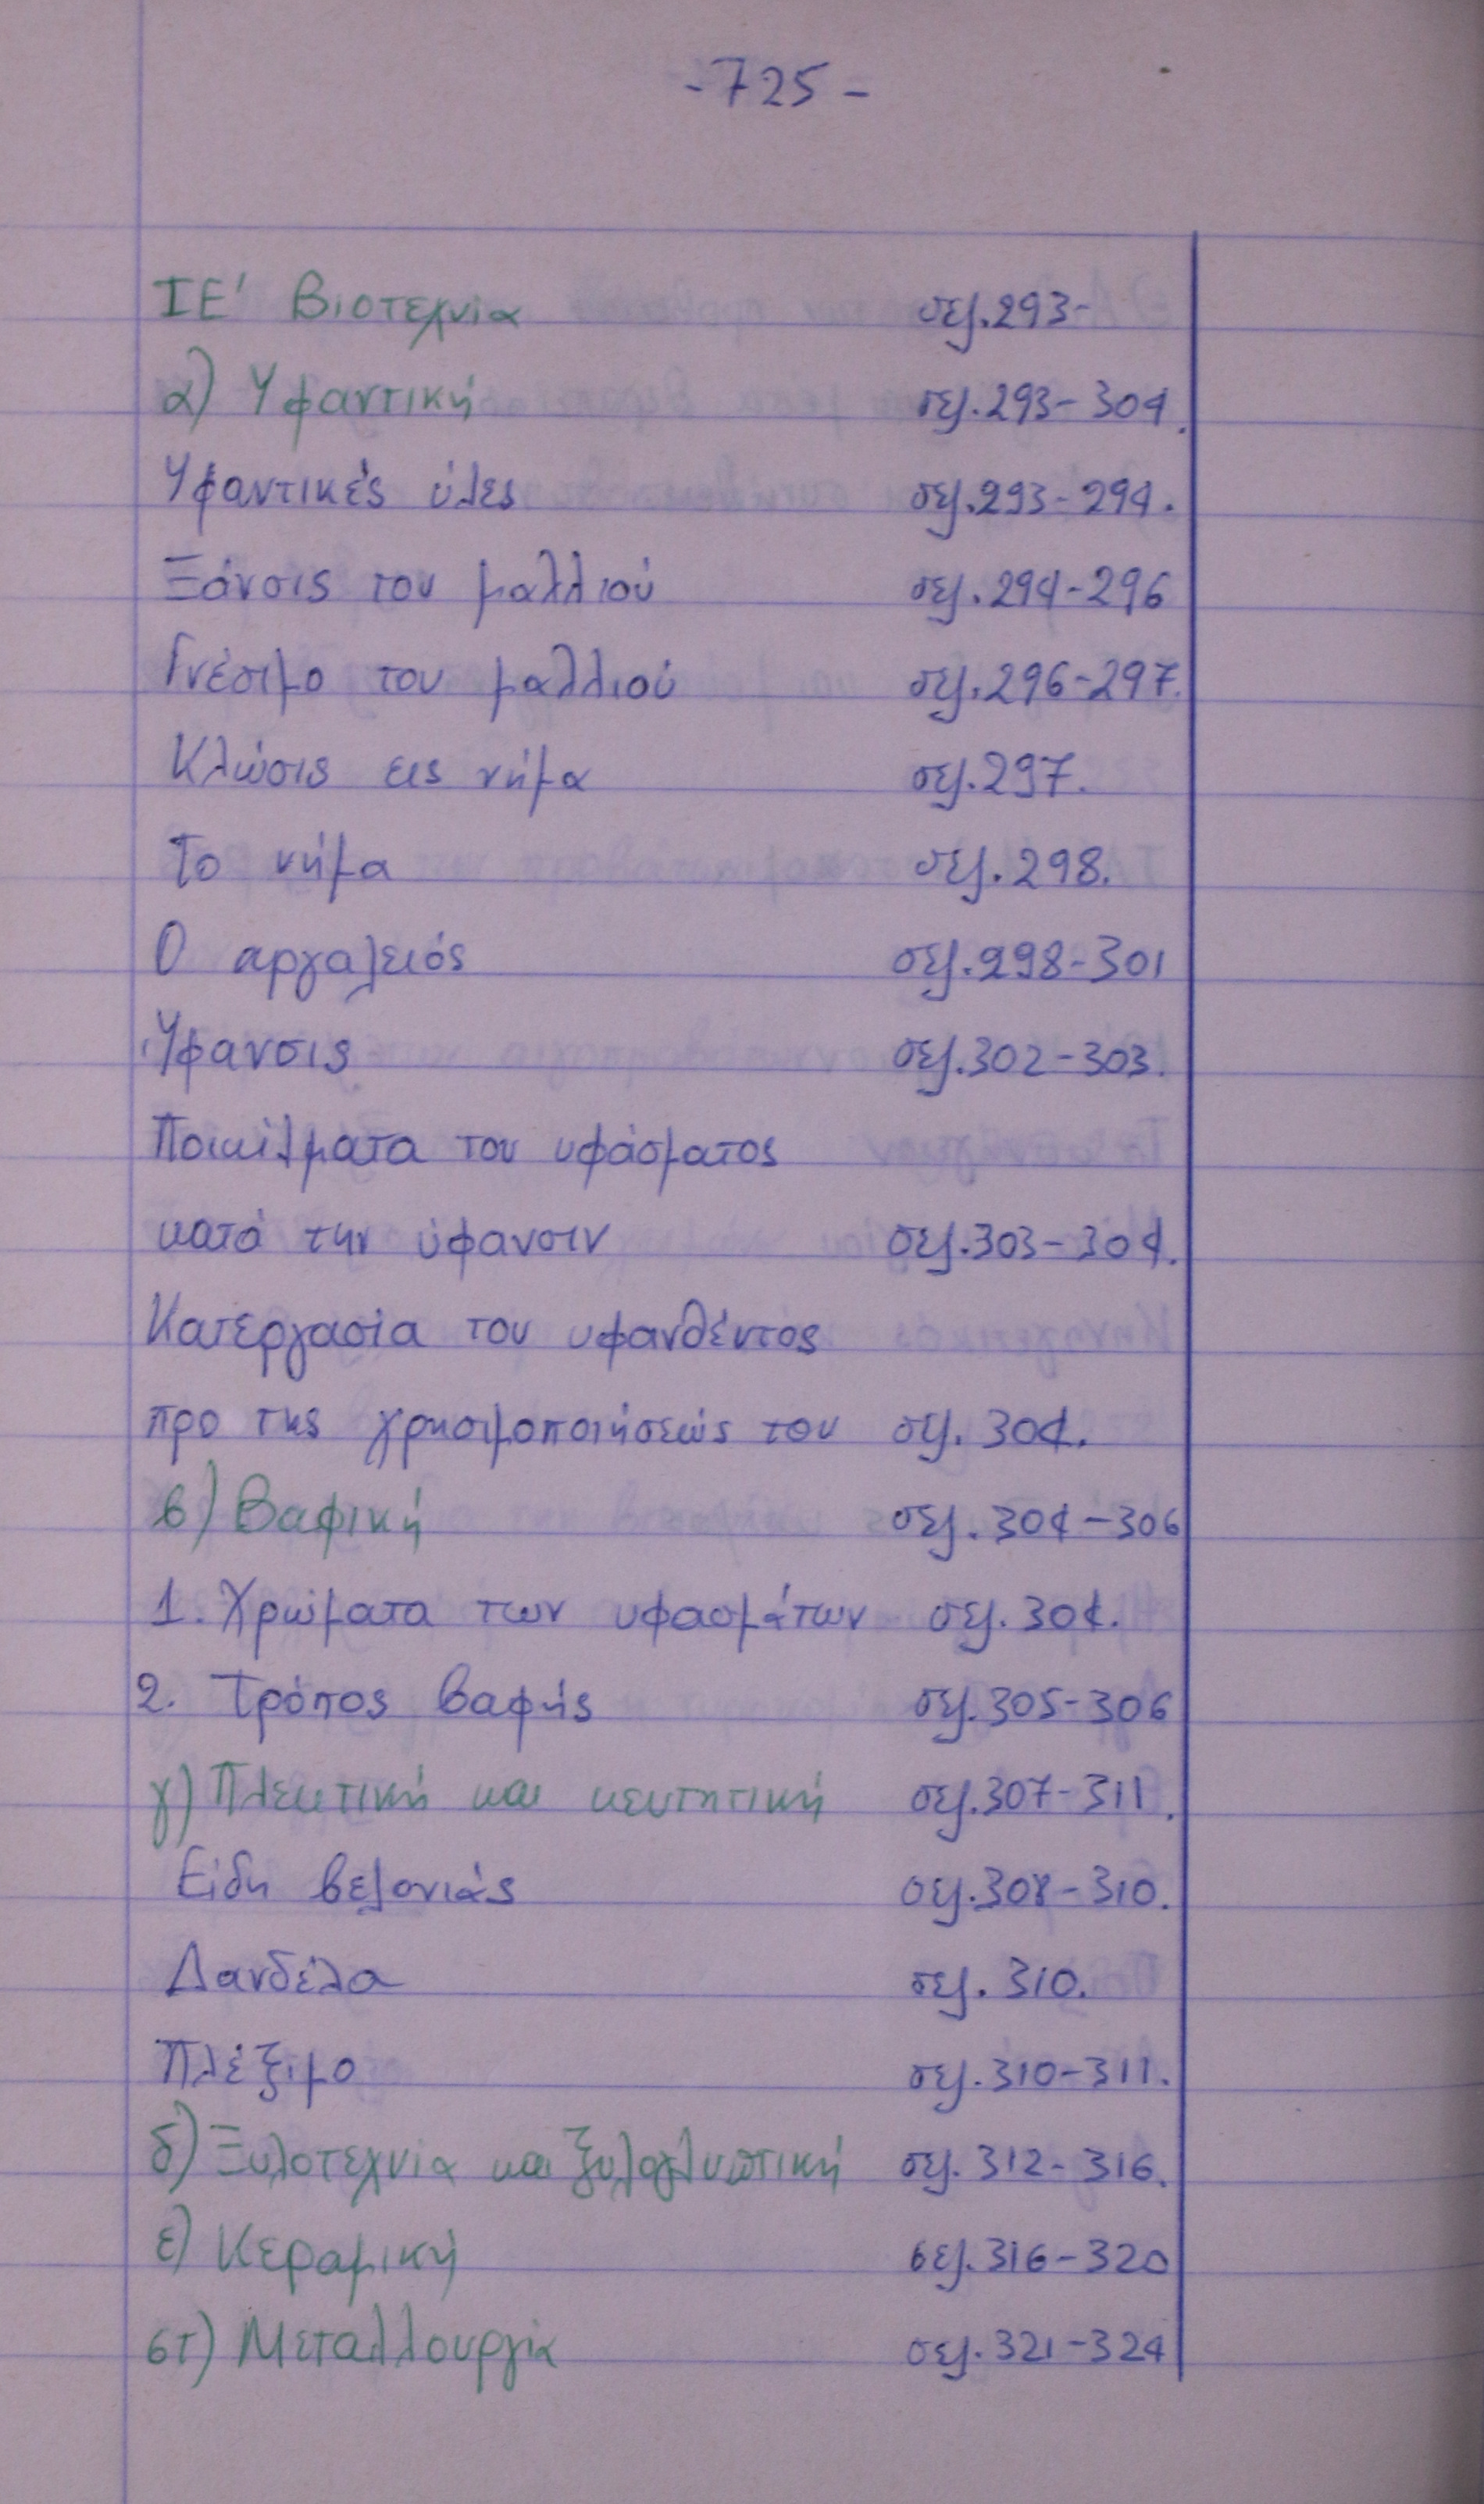 -725-
ΙΕ' Βιοτεχνία σελ.293-
α) Υφαντική σελ.293-304.
Υφαντικές ύλες σελ.293-294.
Ξάνσις του μαλλιού σελ.294-296
Γνέσιμο του μαλλιού σελ.296-297.
Κλώσις εις νήμα σελ.297.
Το νήμα σελ.298.
Ο αργαλειός σελ.298-301
Ύφανσις σελ.302-303.
Ποικίλματα του υφάσματος
κατά την ύφανσιν σελ.303-304.
Κατεργασία του υφανθέντος
προ της χρησιμοποιήσεώς του σελ. 304.
β) Βαφική σελ. 304-306
1. Χρώματα των υφασμάτων σελ. 304.
2. Τρόπος βαφής σελ.305-306
γ) Πλεκτική και κεντητική σελ.307-311.
Είδη βελονιάς σελ.308-310.
Δανδέλα σελ. 310.
Πλέξιμο σελ.310-311.
δ) Ξυλοτεχνία και ξυλογλυπτική σελ. 312-316.
ε) Κεραμική σελ.316-320
στ) Μεταλλουργία σελ.321-324